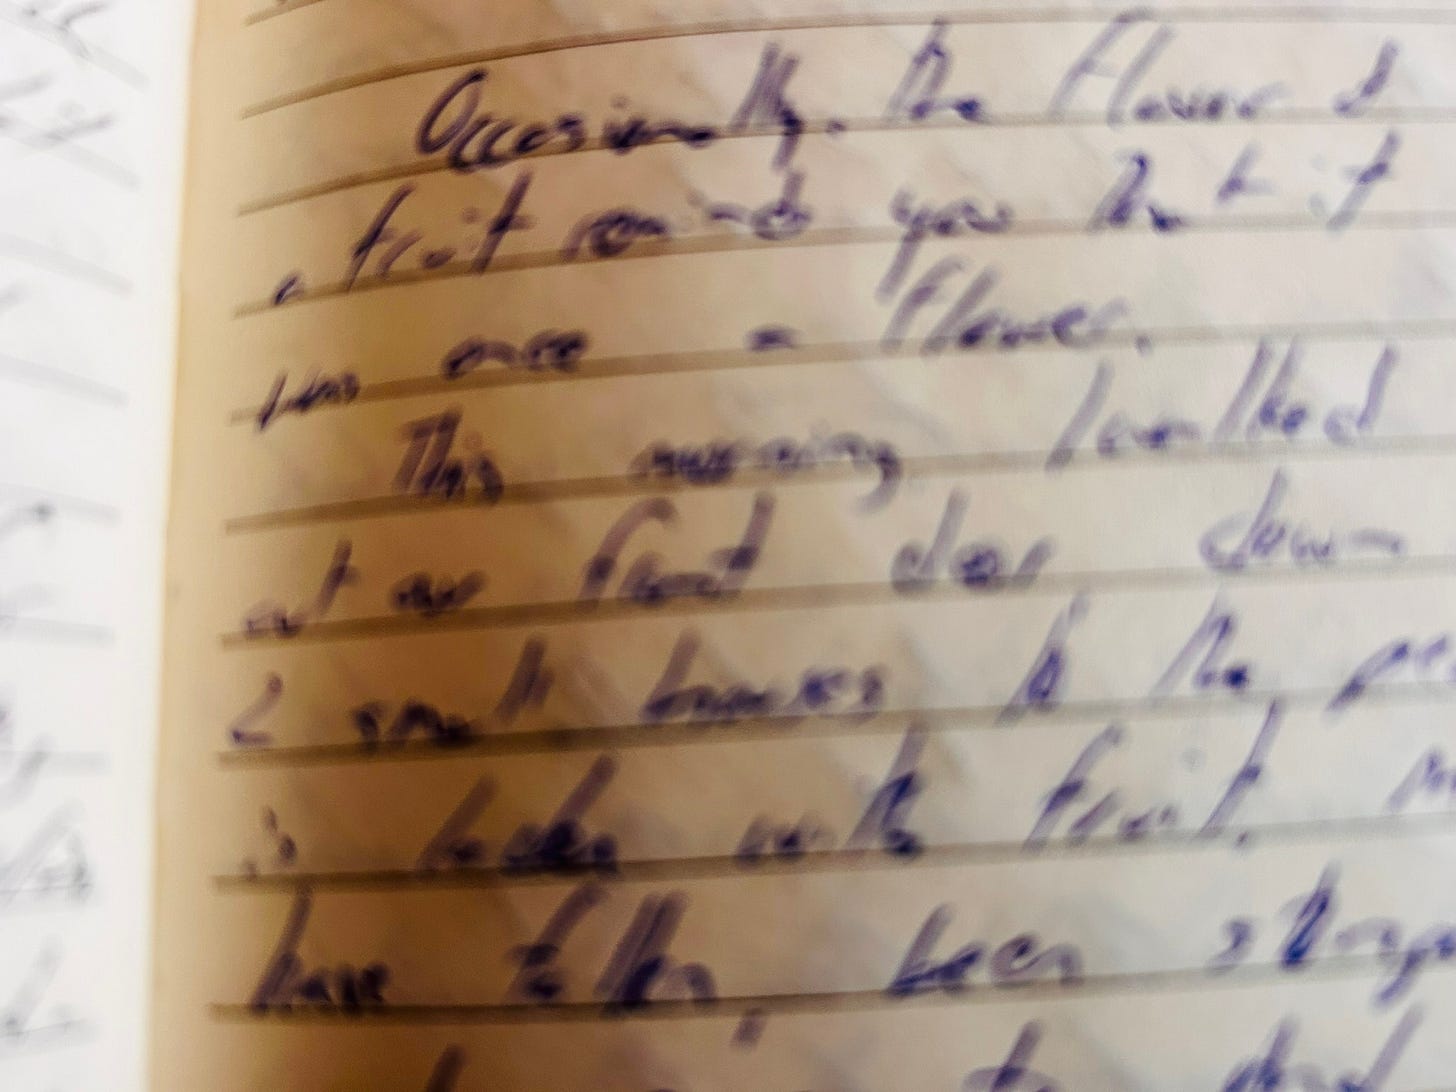 Occasionally, the flavor of
a fruit reminds you that it
was once a flower.
This morning, I walked
out our front door down
2 small houses to the
is laden with fruit.
have fallen, been